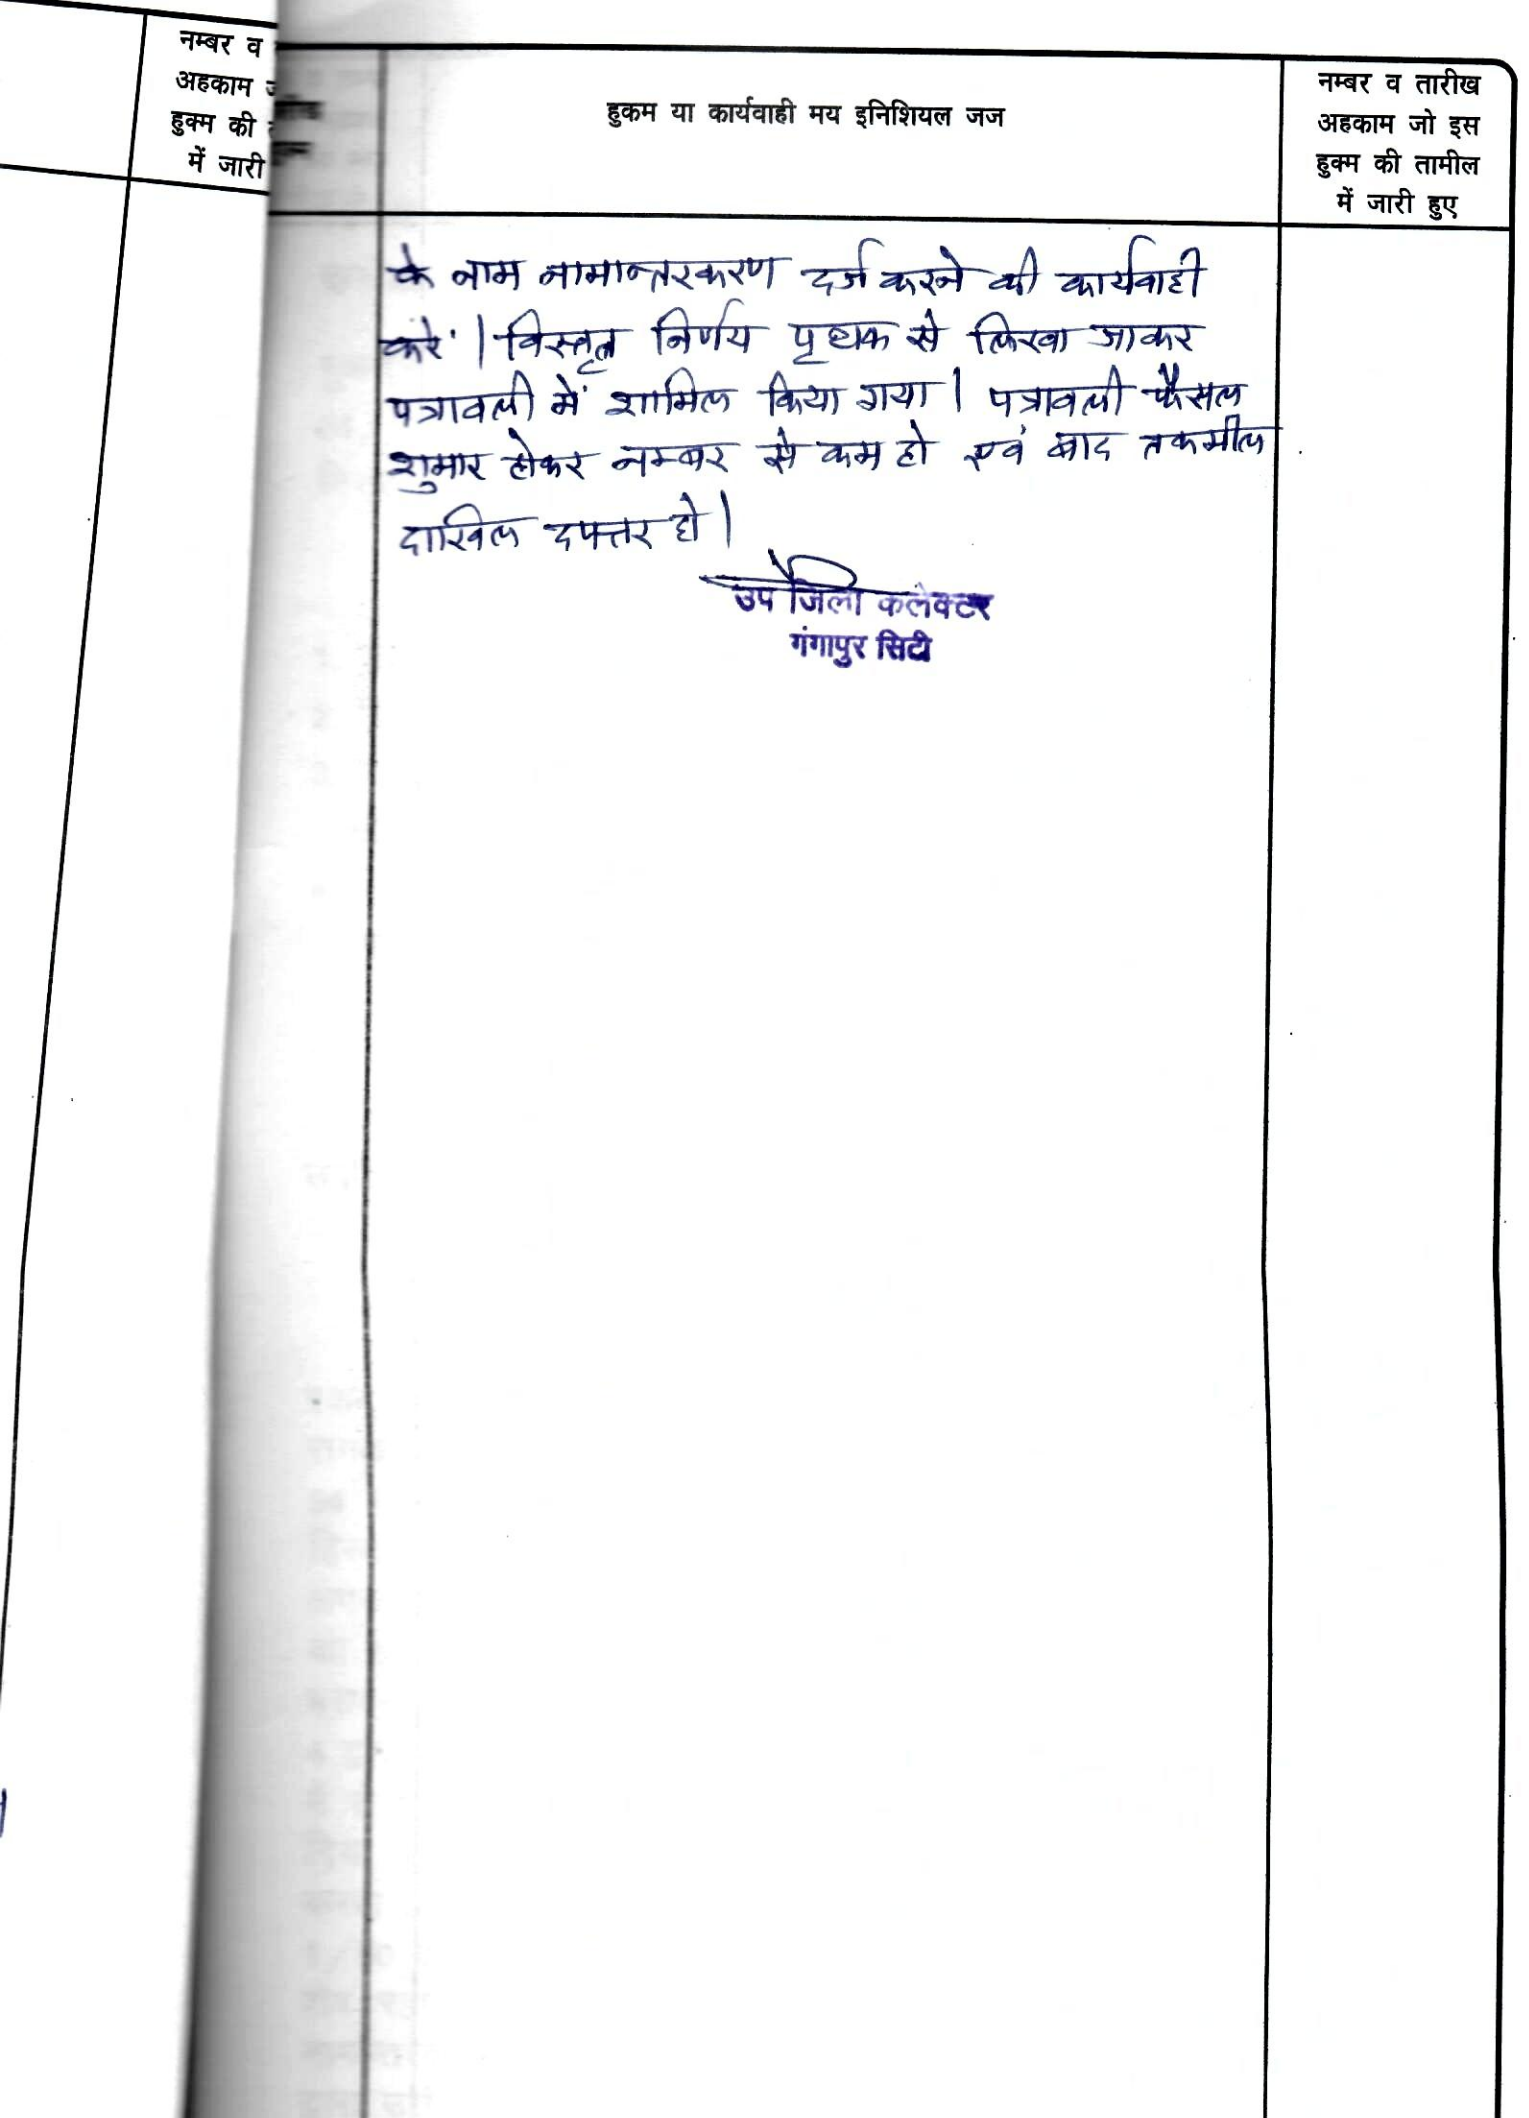 नम्बर व
अहकाम
हुक्म की
में जारी
हुकम या कार्यवाही मय इनिशियल जज
नम्बर व तारीख
अहकाम जो इस
हुक्म की तामील
में जारी हुए
के नाम नामान्तरकरण दर्ज करने की कार्यवाही
करें | विस्तृत निर्णय पृथक से लिखा जाकर
पत्रावली में शामिल किया गया | पत्रावली फैसल
शुमार होकर नम्बर से कम हो एवं बाद तकमील
दाखिल दफ्तर हो |
उप जिला कलेक्टर
गंगापुर सिटी